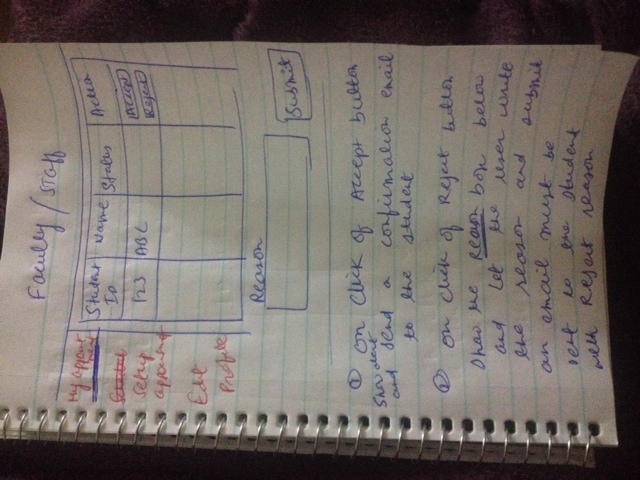 Faculty / Staff
My appoint
ment
Setup
appointment
Edit
Profile
Student
ID
Name
Status
Action
123
ABC
Accept
Reject
Reason
Submit
① on click of Accept button
Show alert
and send a confirmation email
to the student
② on click of Reject button
show the Reason box below
and let the user write
the reason and submit
an email must be
sent to the student
with Reject reason